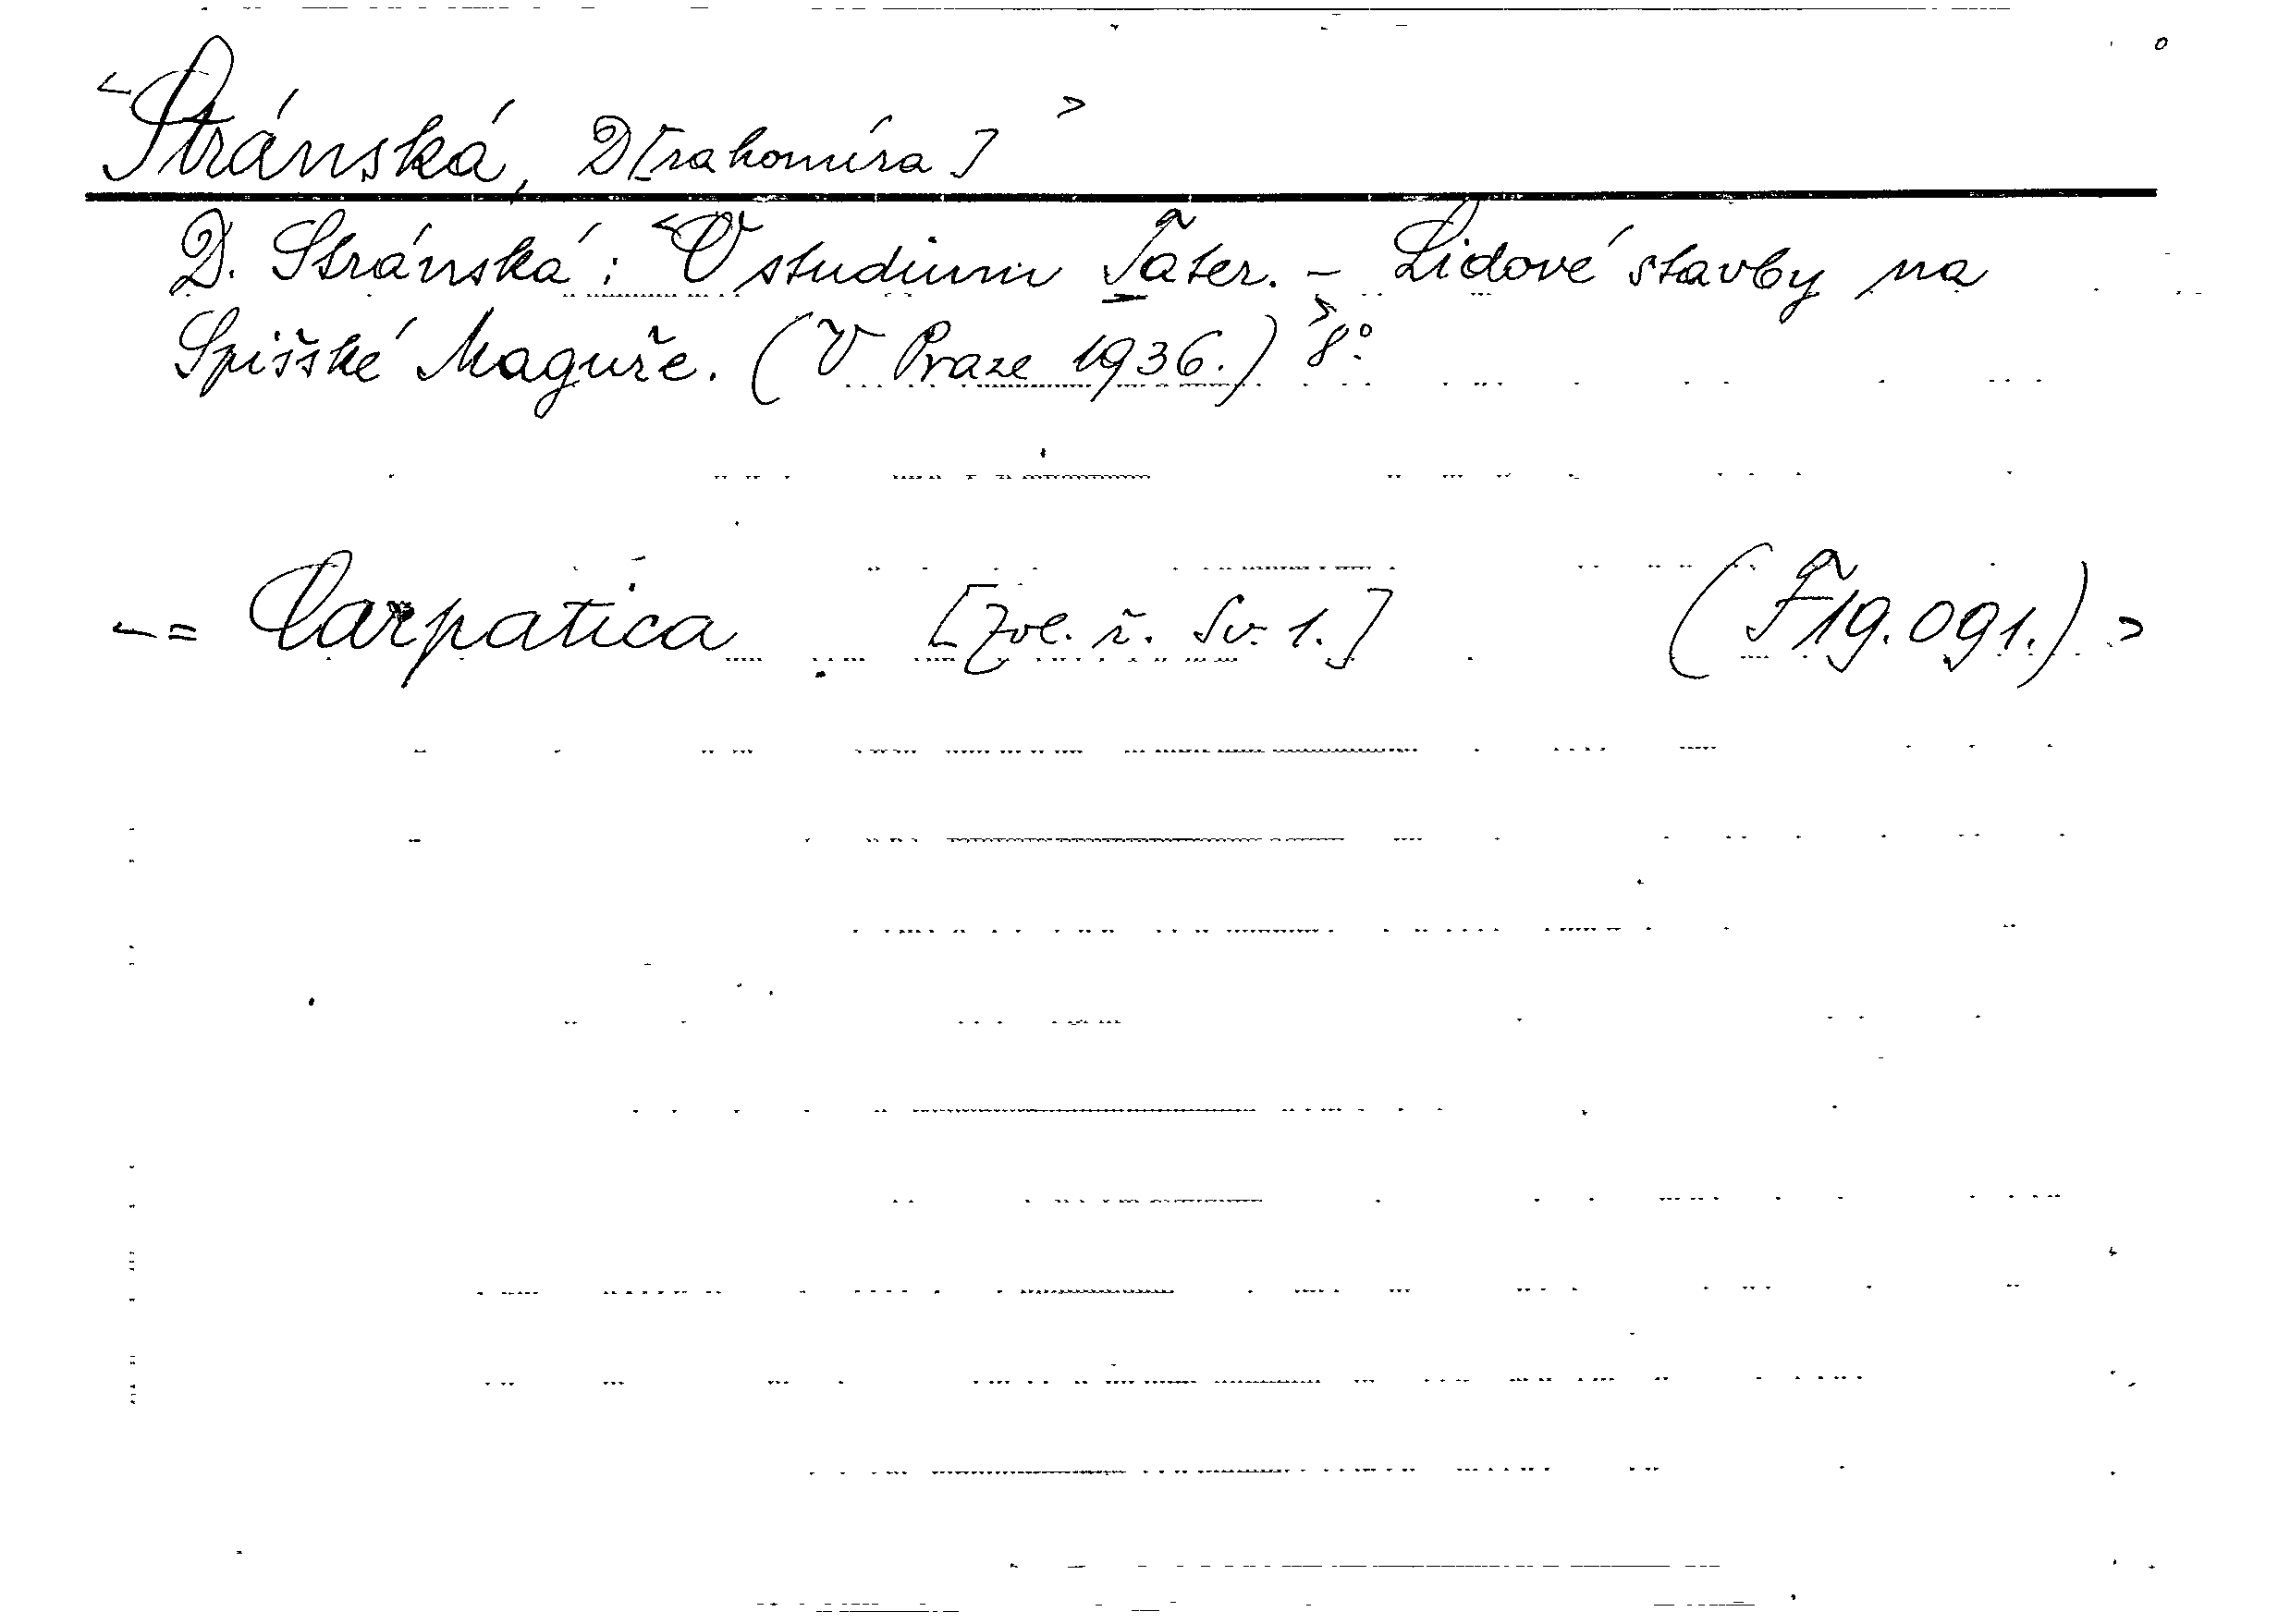 <Stránská, D[rahomíra]>
D. Stránská: <V studium Tater. – Lidové stavby na
Spišské Maguře.> (V Praze 1936.) 8°.
<= Carpatica [Zvl. ř. Sv. 1.] (F 19.091.)>